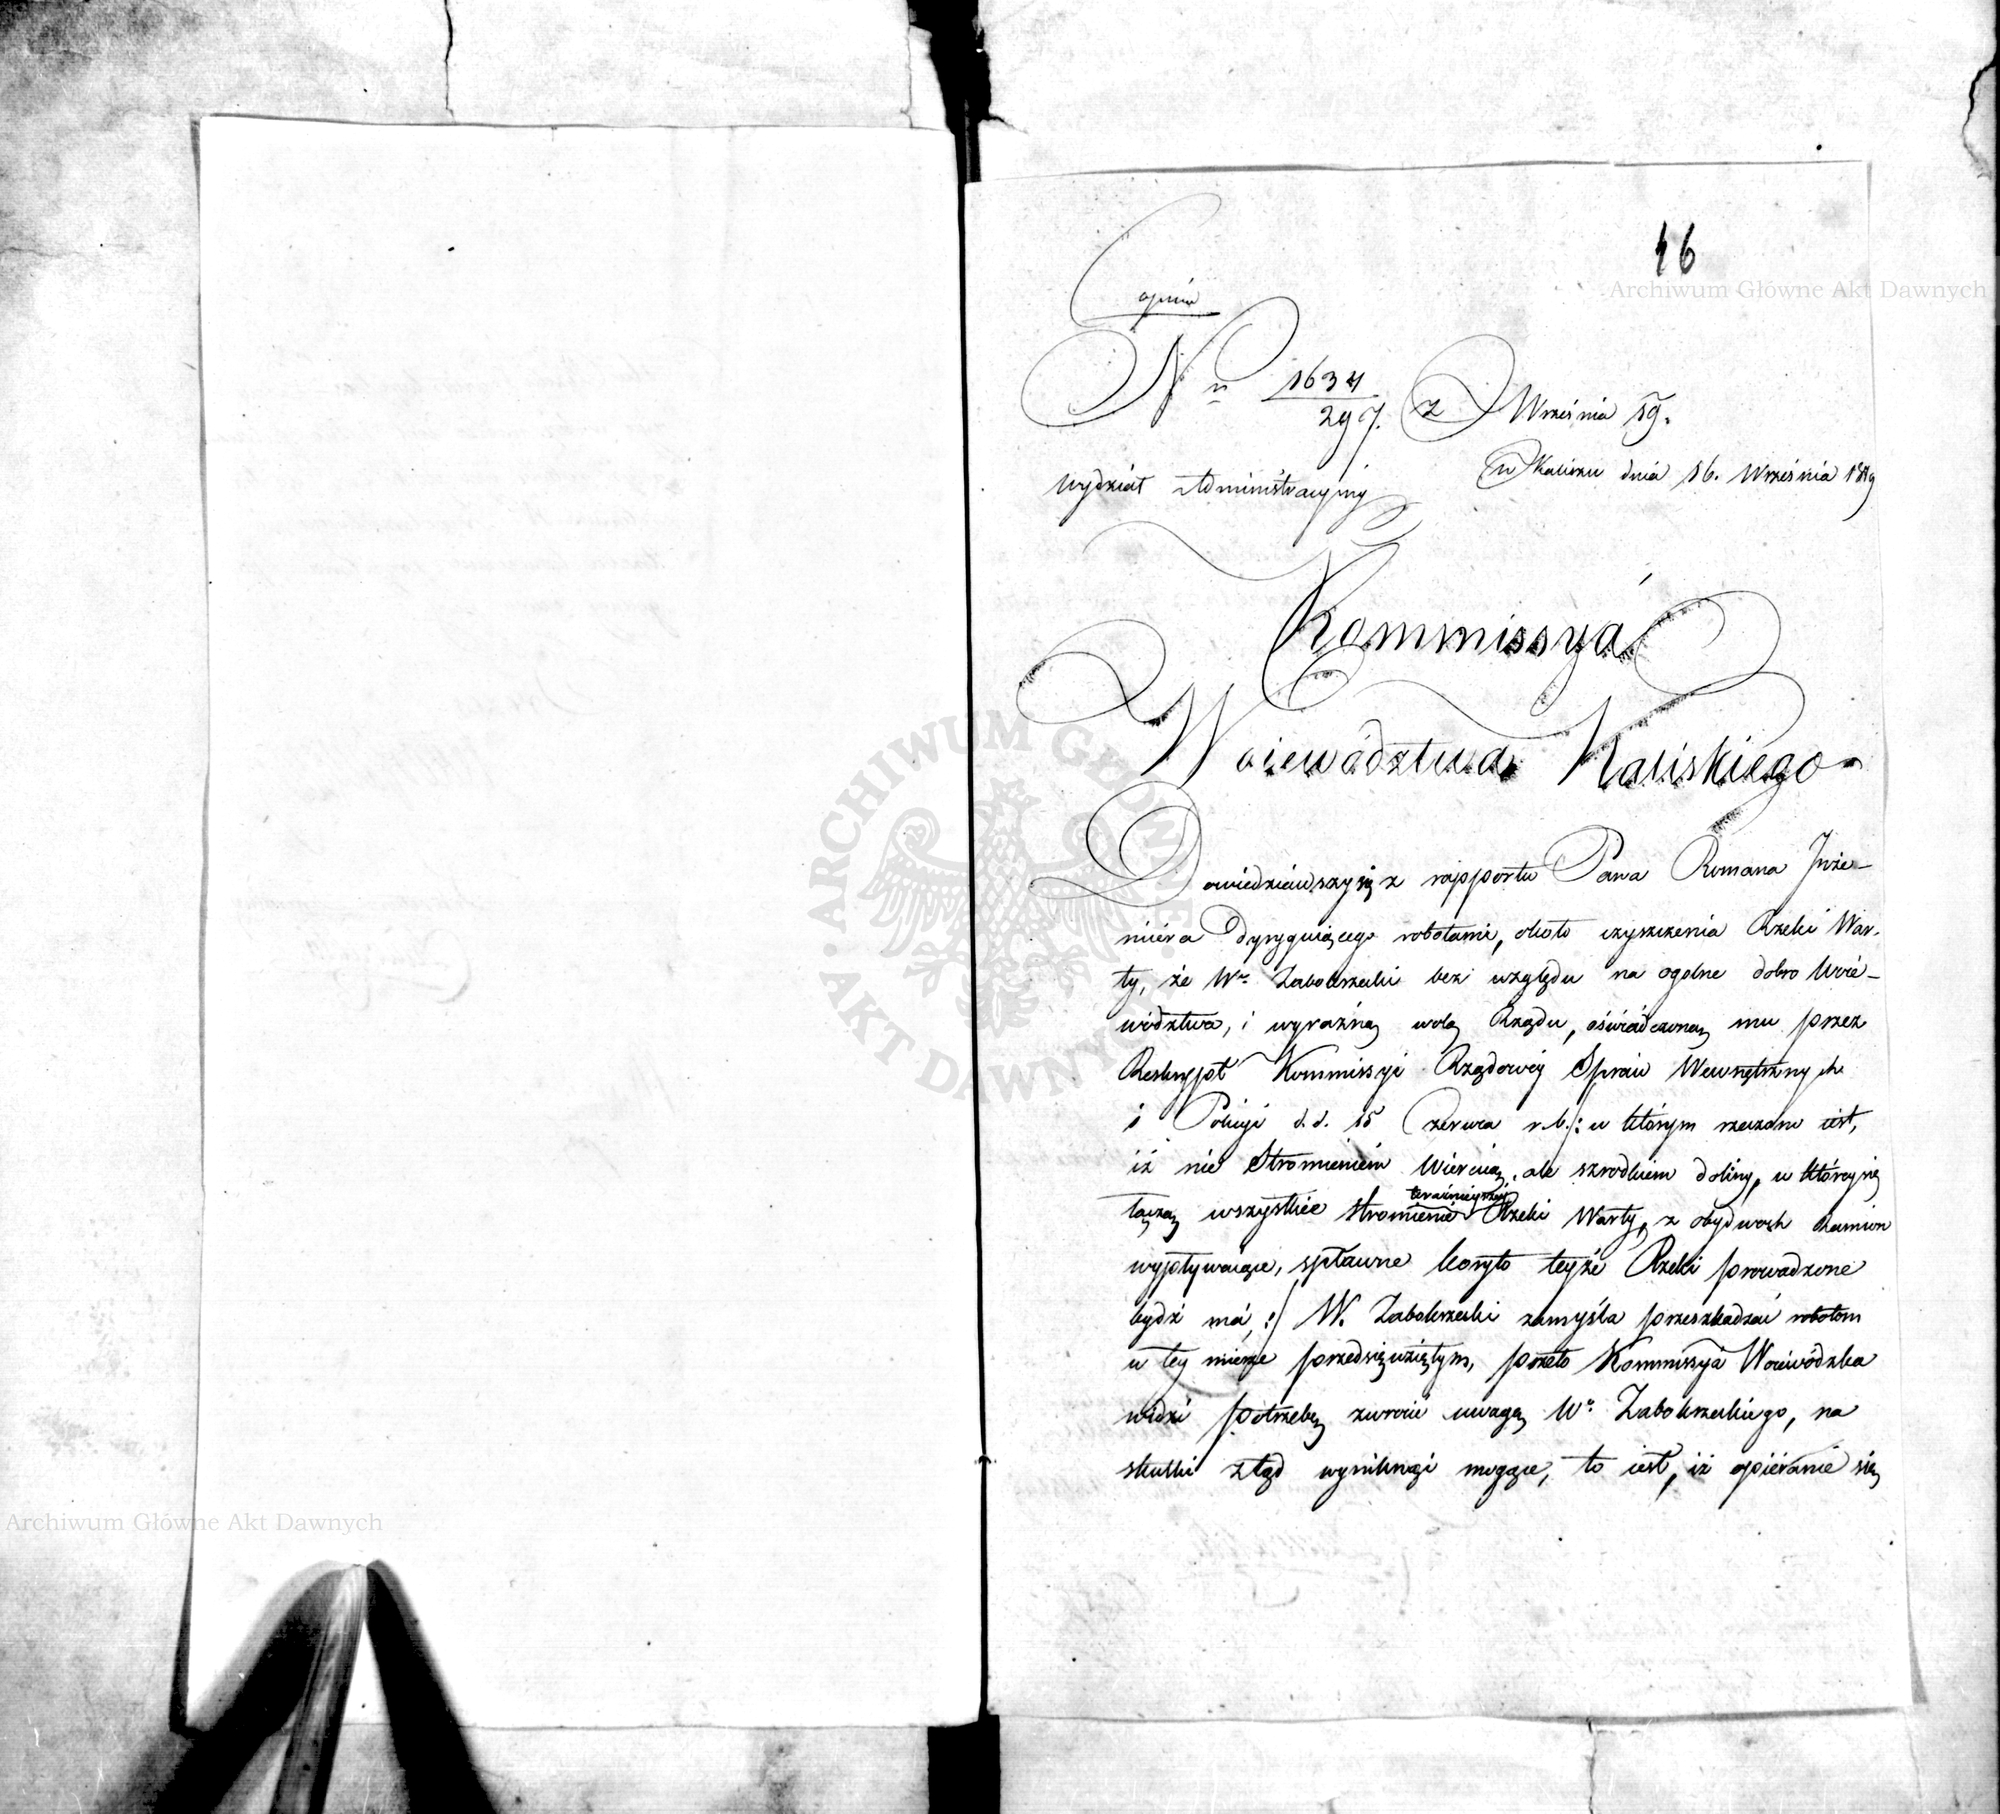 46
Archiwum Główne Akt Dawnych
Copia
Nr 1634/297. z Września 19.
w Kaliszu dnia 16. Września 1819
Wydział Administracyiny
Kommissya
Woiewództwa Kaliskiego
Dowiedziawszy się z rapportu Pana Romana Inże-
niéra Dyryguiącego robotami, około czyszczenia Rzeki War-
ty, że Wny Zabokrzecki bez względu na ogolne dobro Woie-
wództwa, i wyraźną wolą Rządu, oświadczoną mu przez
Reskrypt Kommissyi Rządowéy Spraw Wewnętrznych
i Policyi d.d. 15 Czerwca r.b. /: w którym rzeczono iest,
iż nie Stromieniem Wiercicą, ale szrodkiem doliny, w któréy się
łączą wszystkie stromienie teraznieyszéy Rzeki Warty, z obydwoch Ramion
wypływaiące, spławne koryto teyże Rzeki prowadzone
bydź má, :/ W. Zabokrzecki zamyśla przeszkadzać robotom
w tey mierze przedsięwziętym, przeto Kommissya Woiewódzka
widzi potrzebę zwrocić uwagę Wo Zabokrzeckiego, na
skutki ztąd wyniknąć mogące, to iest, iż opiéranie się
ARCHIWUM GŁÓWNE AKT DAWNYCH
Archiwum Główne Akt Dawnych